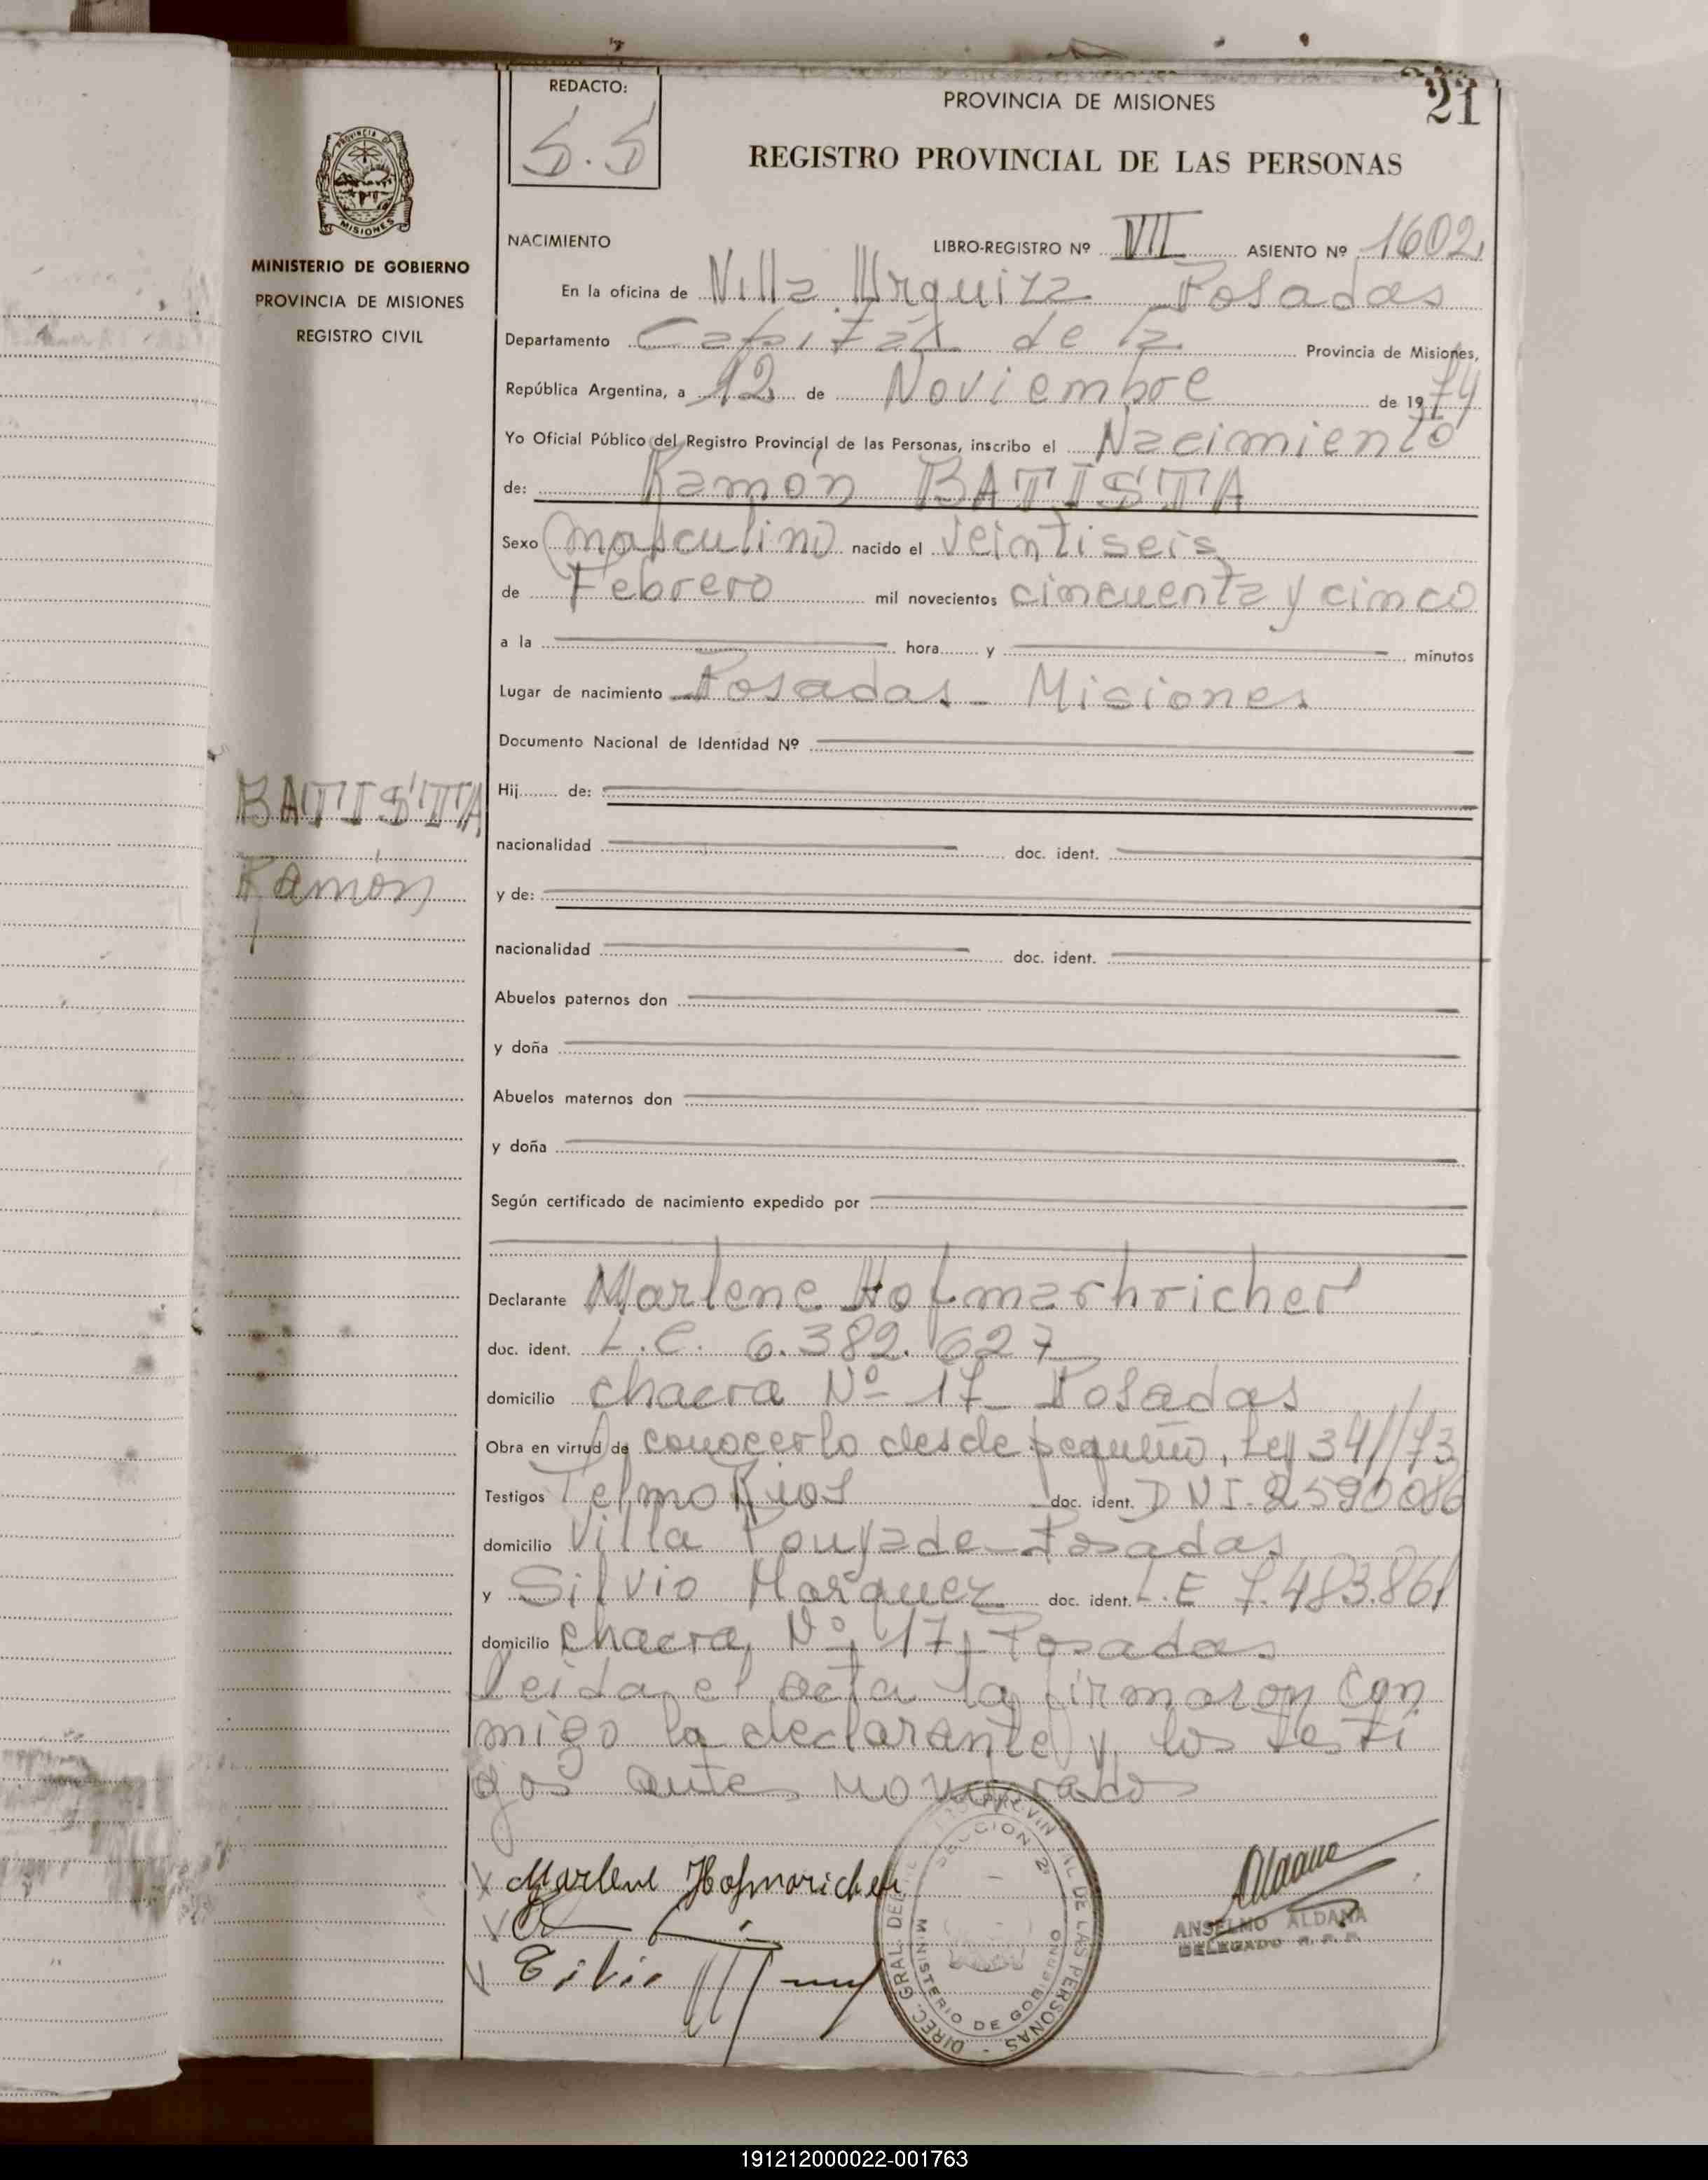 REDACTO:
S.S
PROVINCIA DE MISIONES
21
REGISTRO PROVINCIAL DE LAS PERSONAS
PROVINCIA DE
MISIONES
MINISTERIO DE GOBIERNO
PROVINCIA DE MISIONES
REGISTRO CIVIL
NACIMIENTO
LIBRO-REGISTRO Nº VII ASIENTO Nº 1602
En la oficina de Villa Urquiza Posadas
Departamento Capital de la Provincia de Misiones,
República Argentina, a 12 de Noviembre de 1974
Yo Oficial Público del Registro Provincial de las Personas, inscribo el Nacimiento
de: Ramón BATISTA
Sexo masculino nacido el veintiseis
de Febrero mil novecientos cincuenta y cinco
a la hora y minutos
Lugar de nacimiento Posadas - Misiones
Documento Nacional de Identidad Nº
BATISTA
Ramón
Hij de:
nacionalidad doc. ident.
y de:
nacionalidad doc. ident.
Abuelos paternos don
y doña
Abuelos maternos don
y doña
Según certificado de nacimiento expedido por
Declarante Marlene Hofmarhricher
doc. ident. L.C. 6.382.627
domicilio chacra Nº 17 - Posadas
Obra en virtud de conocerlo desde pequeño, Ley 341/73
Testigos Telmo Rios doc. ident. DNI. 2590086
domicilio Villa Poujade - Posadas
y Silvio Marquez doc. ident. L.E 7.483.861
domicilio chacra Nº 17, Posadas
leida el acta la firmaron con
migo la declarante y los testi
gos ante nombrados
Marlene Hofmaricher
DIREC. GRAL. DEL PROVINCIAL DE LAS PERSONAS
SECCION 2ª
MINISTERIO DE GOBIERNO
ANSELMO ALDANA
DELEGADO R. P. P.
191212000022-001763